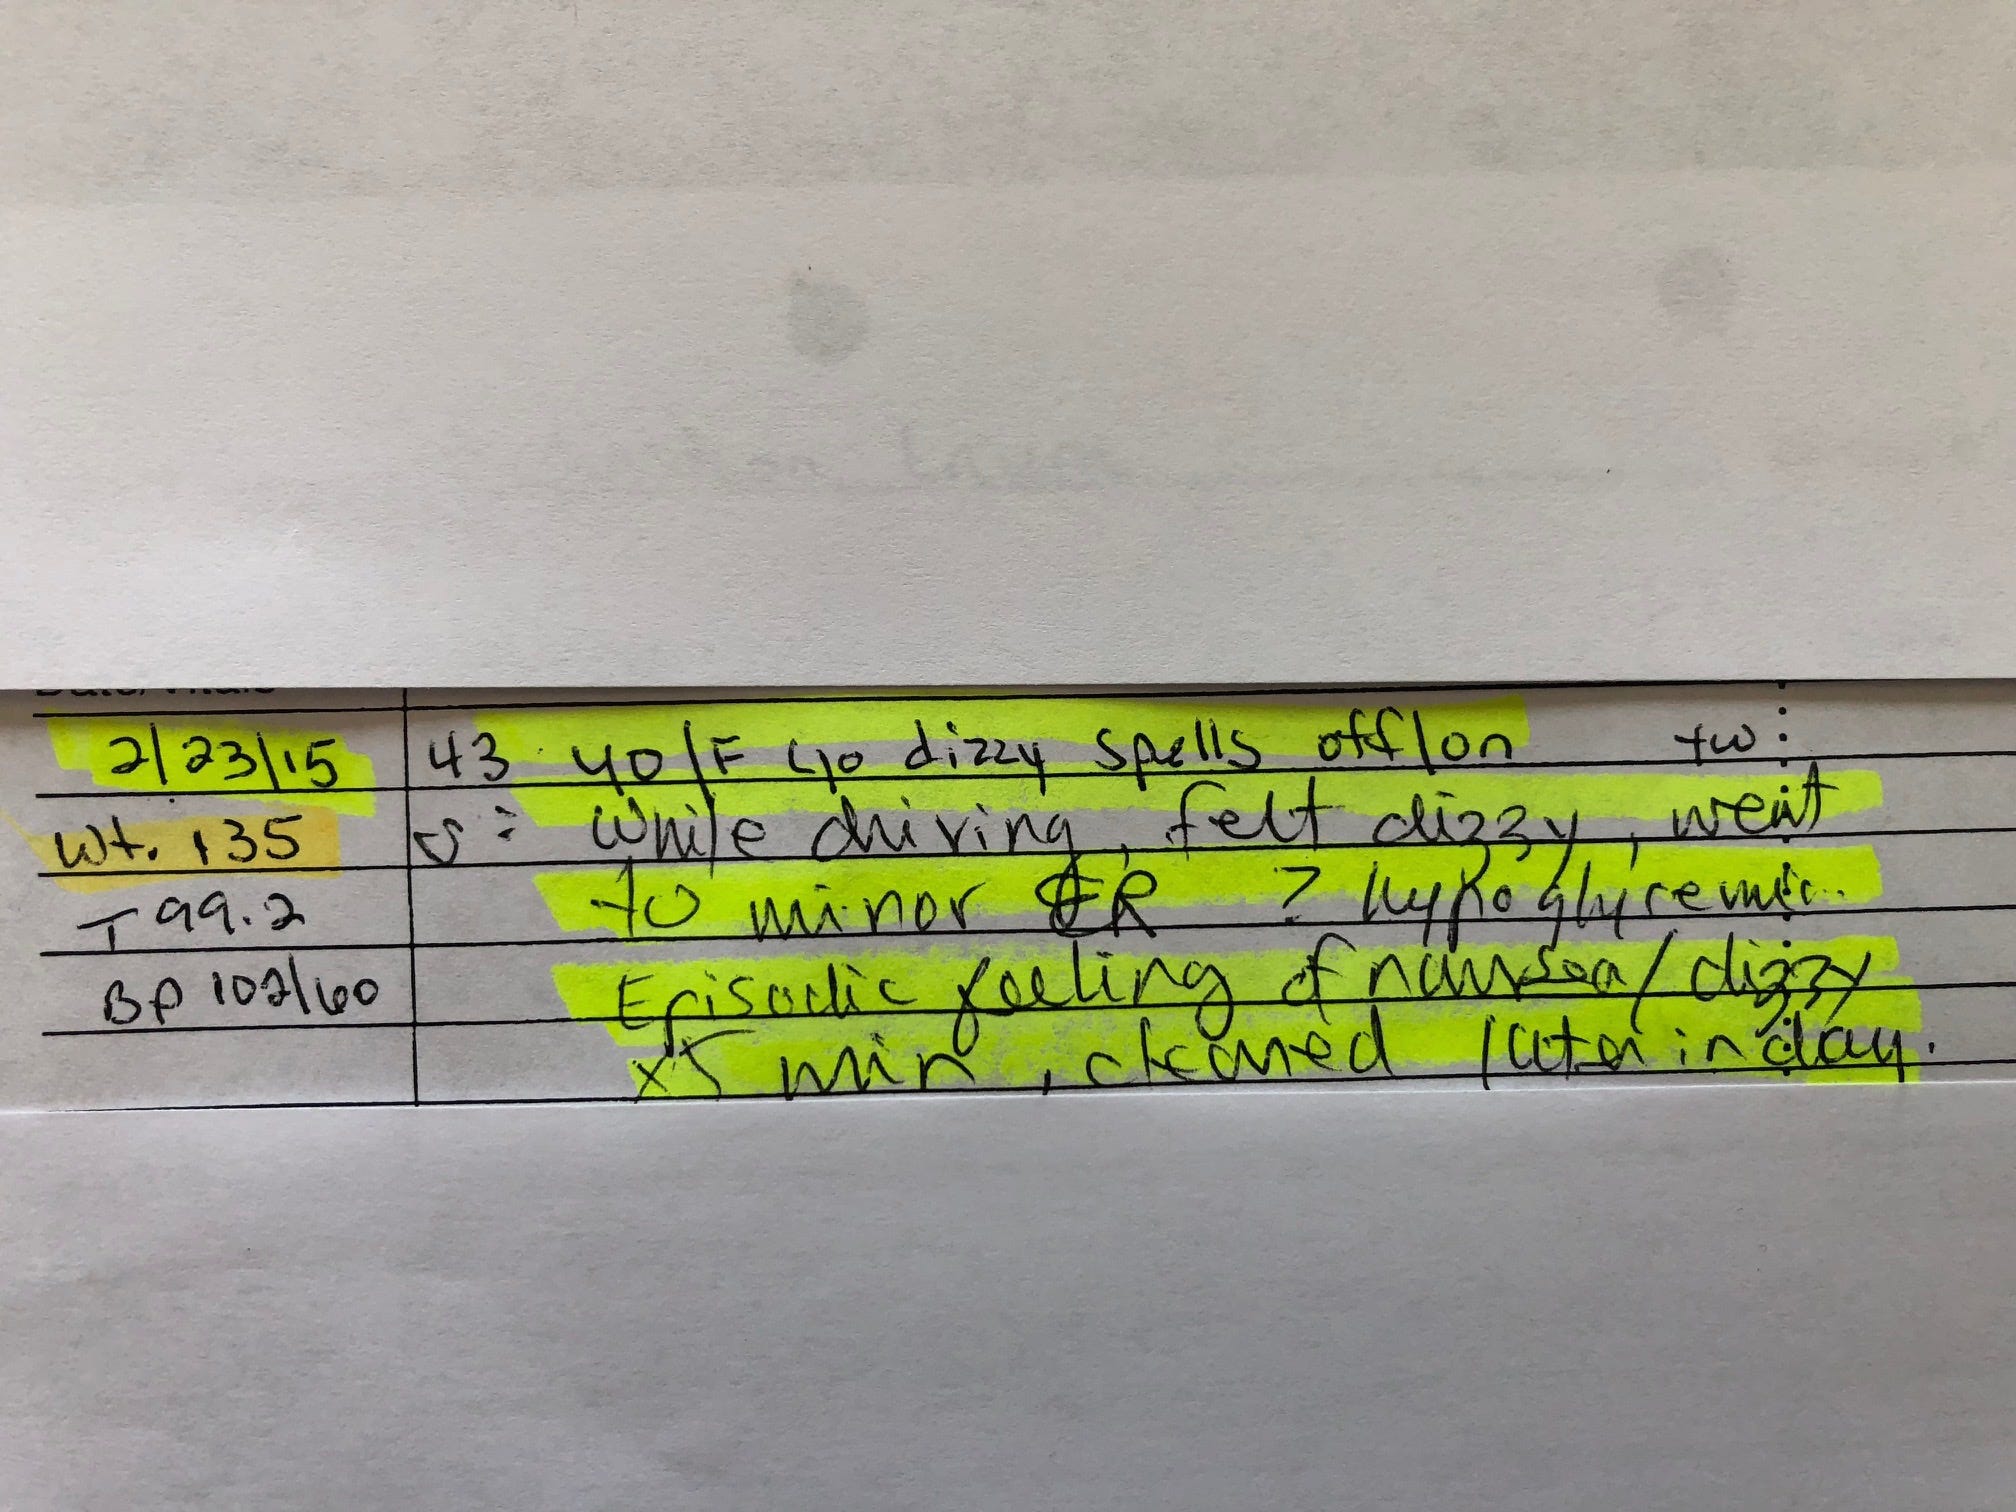 2/23/15 43 yo/F c/o dizzy spells off/on
Wt. 135 S: While driving, felt dizzy, went
T 99.2 to minor ER ? hypoglycemic..
BP 102/60 Episodic feeling of nausea/dizzy
x5 min, cleared later in day.